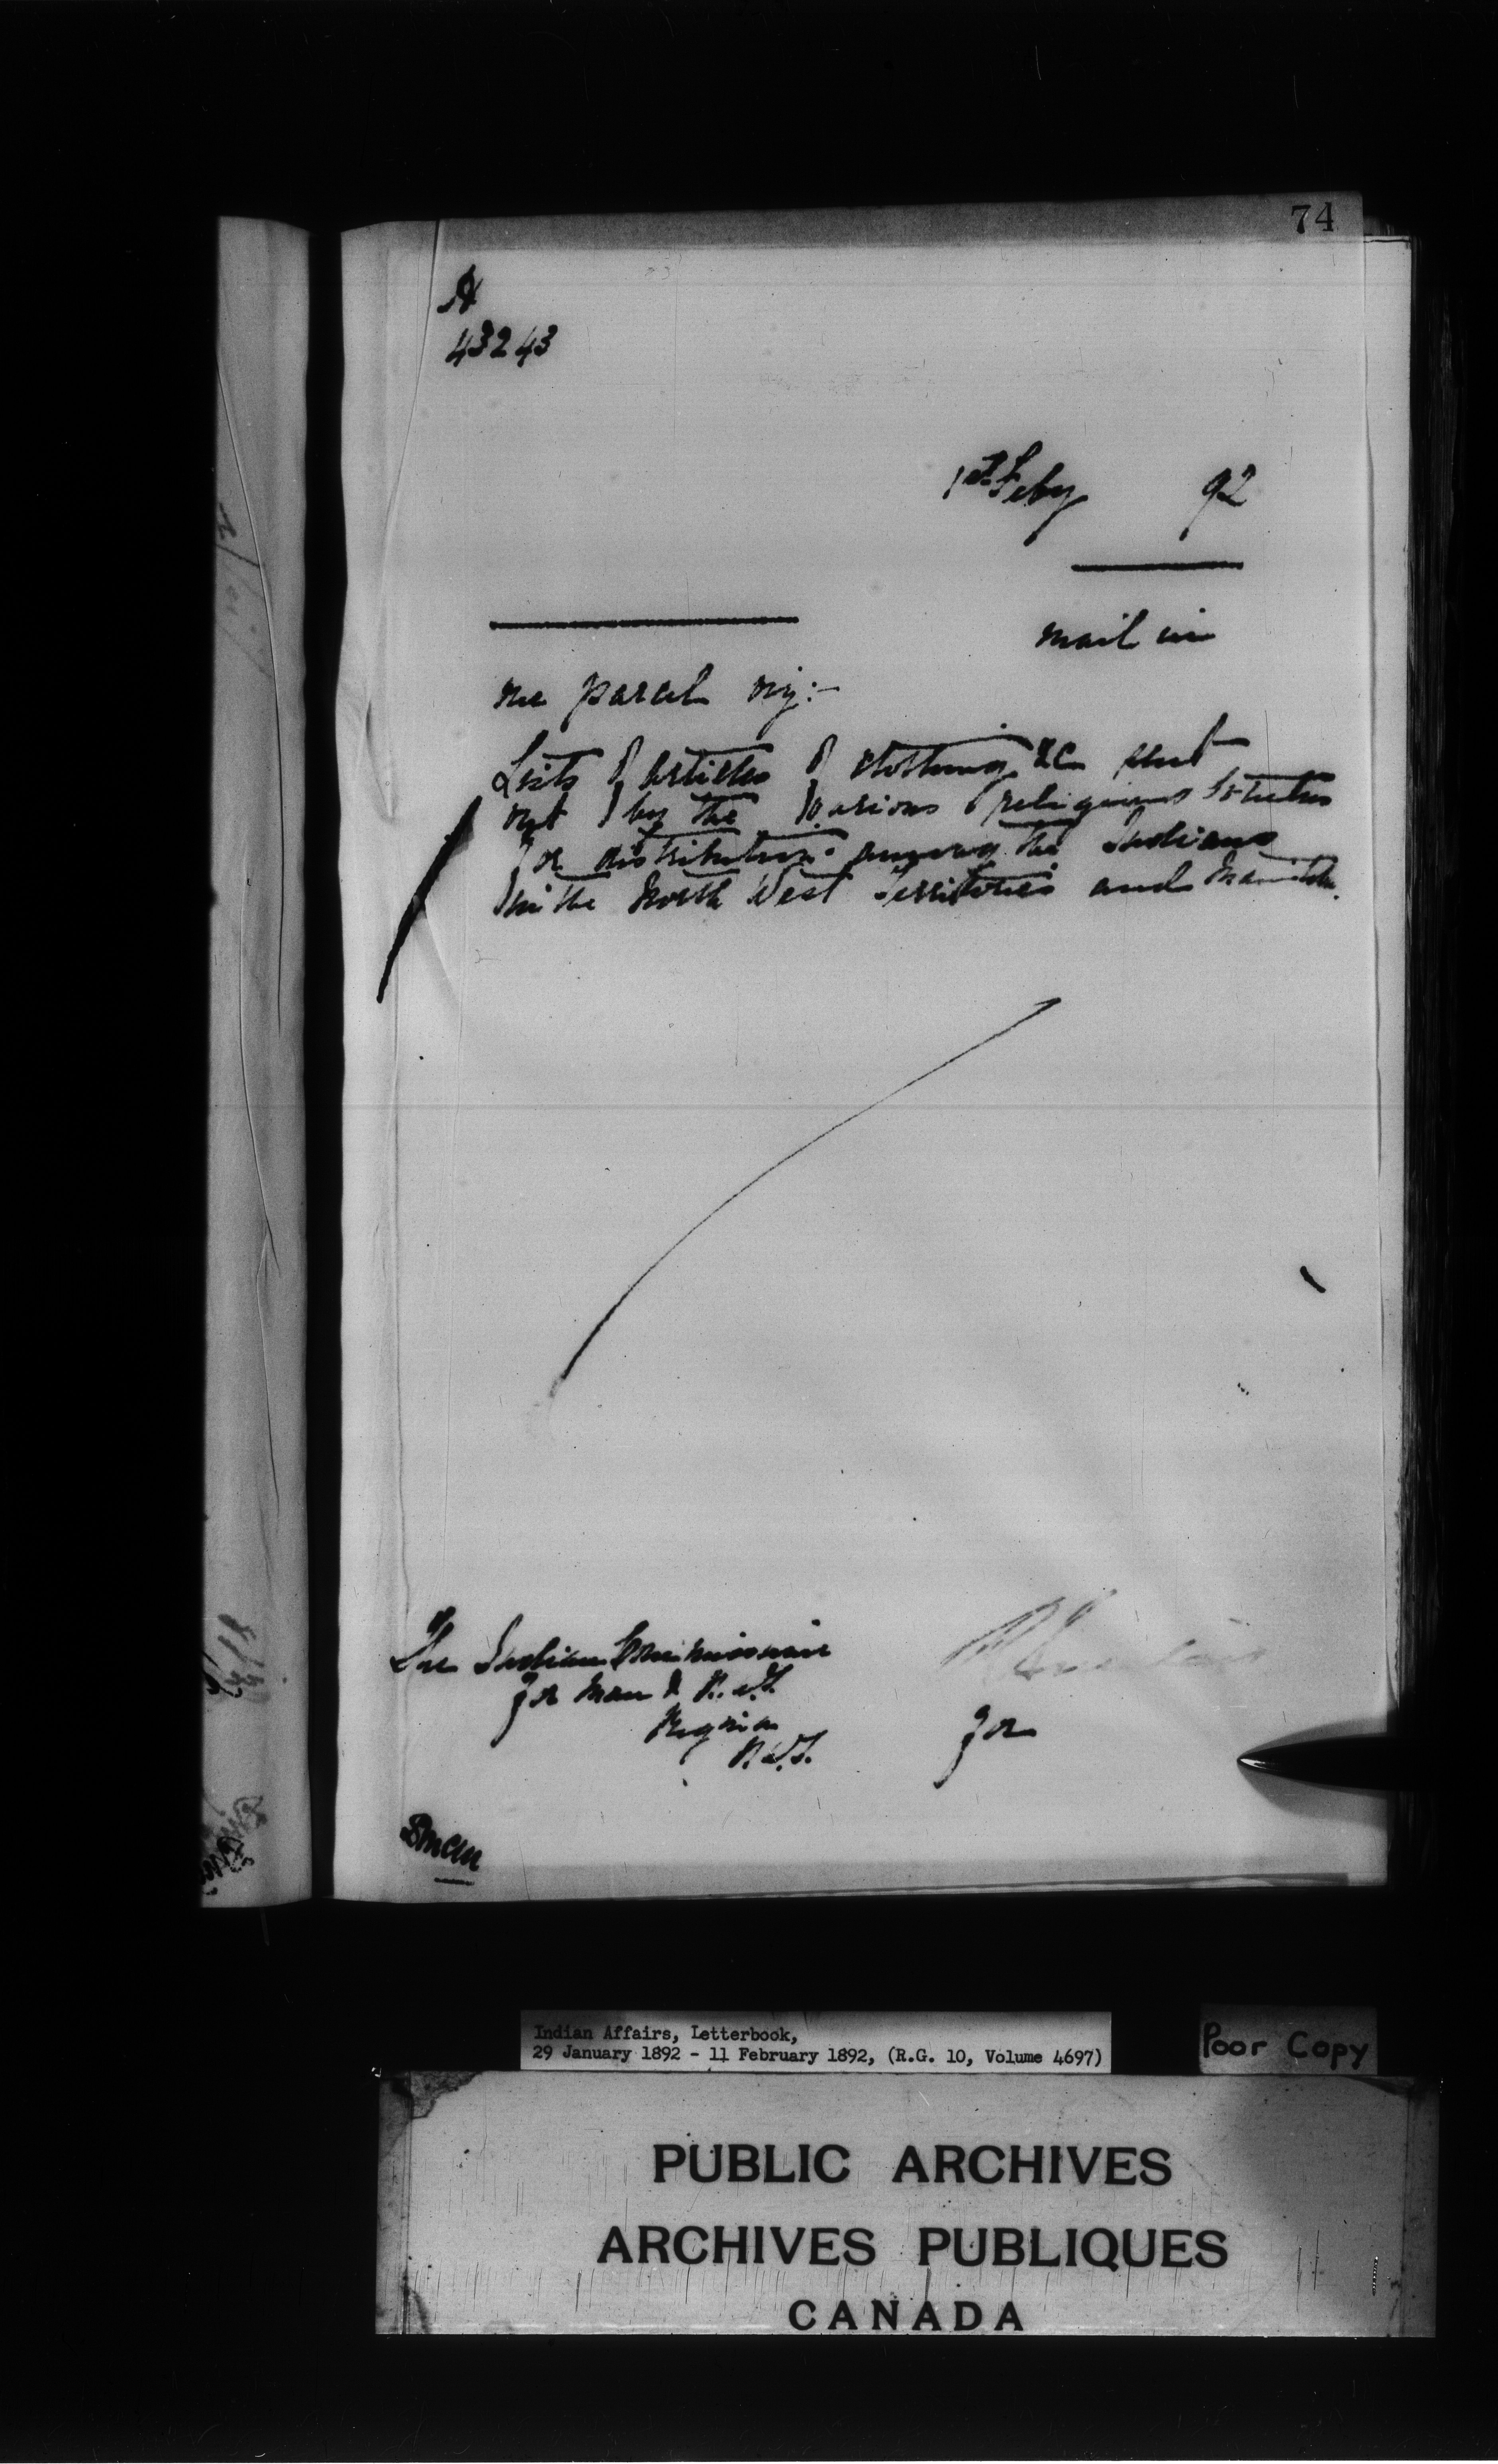 74
A
43243
1st Feby 92
mail in
one parcel viz:-
Lists of articles of clothing &c sent
out by the various religious Societies
for distribution among the Indians
in the North West Territories and Manitoba.
The Indian Commissioner
for Man & N.W.T.
Regina
N.W.T.
for
Indian Affairs, Letterbook,
29 January 1892 - 11 February 1892, (R.G. 10, Volume 4697)
Poor Copy
PUBLIC ARCHIVES
ARCHIVES PUBLIQUES
CANADA